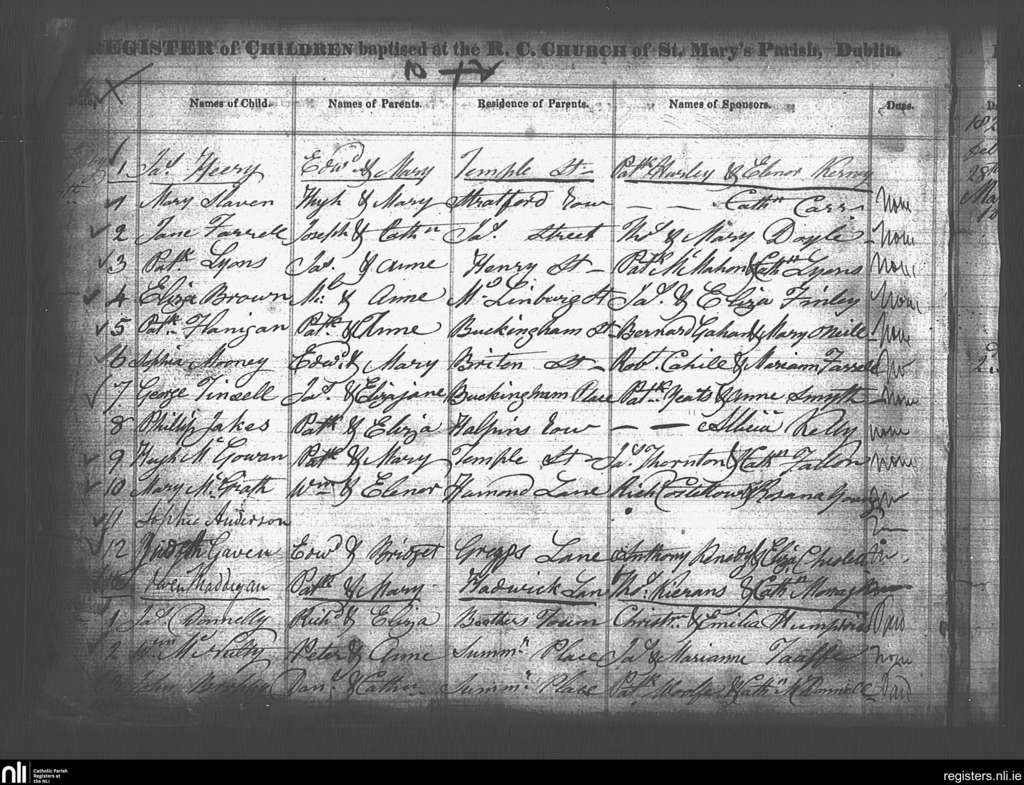 REGISTER of CHILDREN baptised at the R. C. CHURCH of St. Mary's Parish, Dublin.
Names of Child. Names of Parents. Residence of Parents. Names of Sponsors. Dues.
1 Jas. Heery Edwd & Mary Temple St Patk Hurley & Elenor Kerny
1 Mary Slaven Hugh & Mary Stratford Row — — Cathn Carr None
2 Jane Farrell Joseph & Cathn Jas. Street Thos & Mary Doyle None
3 Patk Lyons Jas. & Anne Henry St Patk McMahon & Cathn Lyons None
4 Eliza Brown Ml & Anne Mclinburg St Jas. & Eliza Finley None
5 Patk Flanigan Patk & Anne Buckingham St Bernard Gahan & Mary None
6 Sophia Mooney Edwd & Mary Briton St Robt Cahill & Mariann Farrell
7 George Tinsell Jas. & Elizajane Buckingham Place Patk Yeats & Anne Smyth None
8 Phillip Jakes Patk & Eliza Halpins Row — — Allicia Kelly None
9 Hugh McGowan Patk & Mary Temple St Jas. Thornton & Cathn Fallon None
10 Mary McGrath Wm & Elenor Hamond Lane Richd & Rosana
11 Sophie Anderson
12 Judith Gaven Edwd & Bridget Greggs Lane Anthony & Eliza
Owen Maddigan Patk & Mary Hadwick Lan Thos. Kierans & Cathn
1 Jas. Donnelly Richd & Eliza Boothers Town Christr. & Emilia Humphries Paid
2 Wm McNalty Peter & Anne Summn Place Jas & Marianne Taaffe None
3 John Danl. & Cathn Summn Place Patk & Cathn McDonnell Paid
nli Catholic Parish
Registers at
the NLI
registers.nli.ie